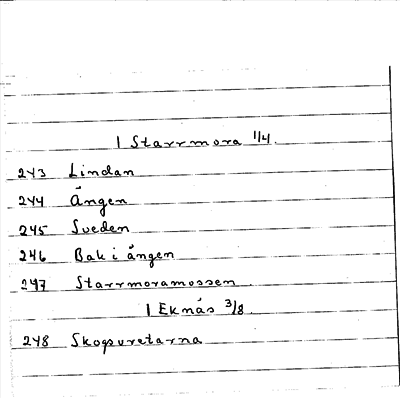 1 Starrmora 1/4.
243 Lindan
244 Ängen
245 Sveden
246 Bak i ängen
247 Starrmoramossen
1 Eknäs 3/8
248 Skogsvretarna